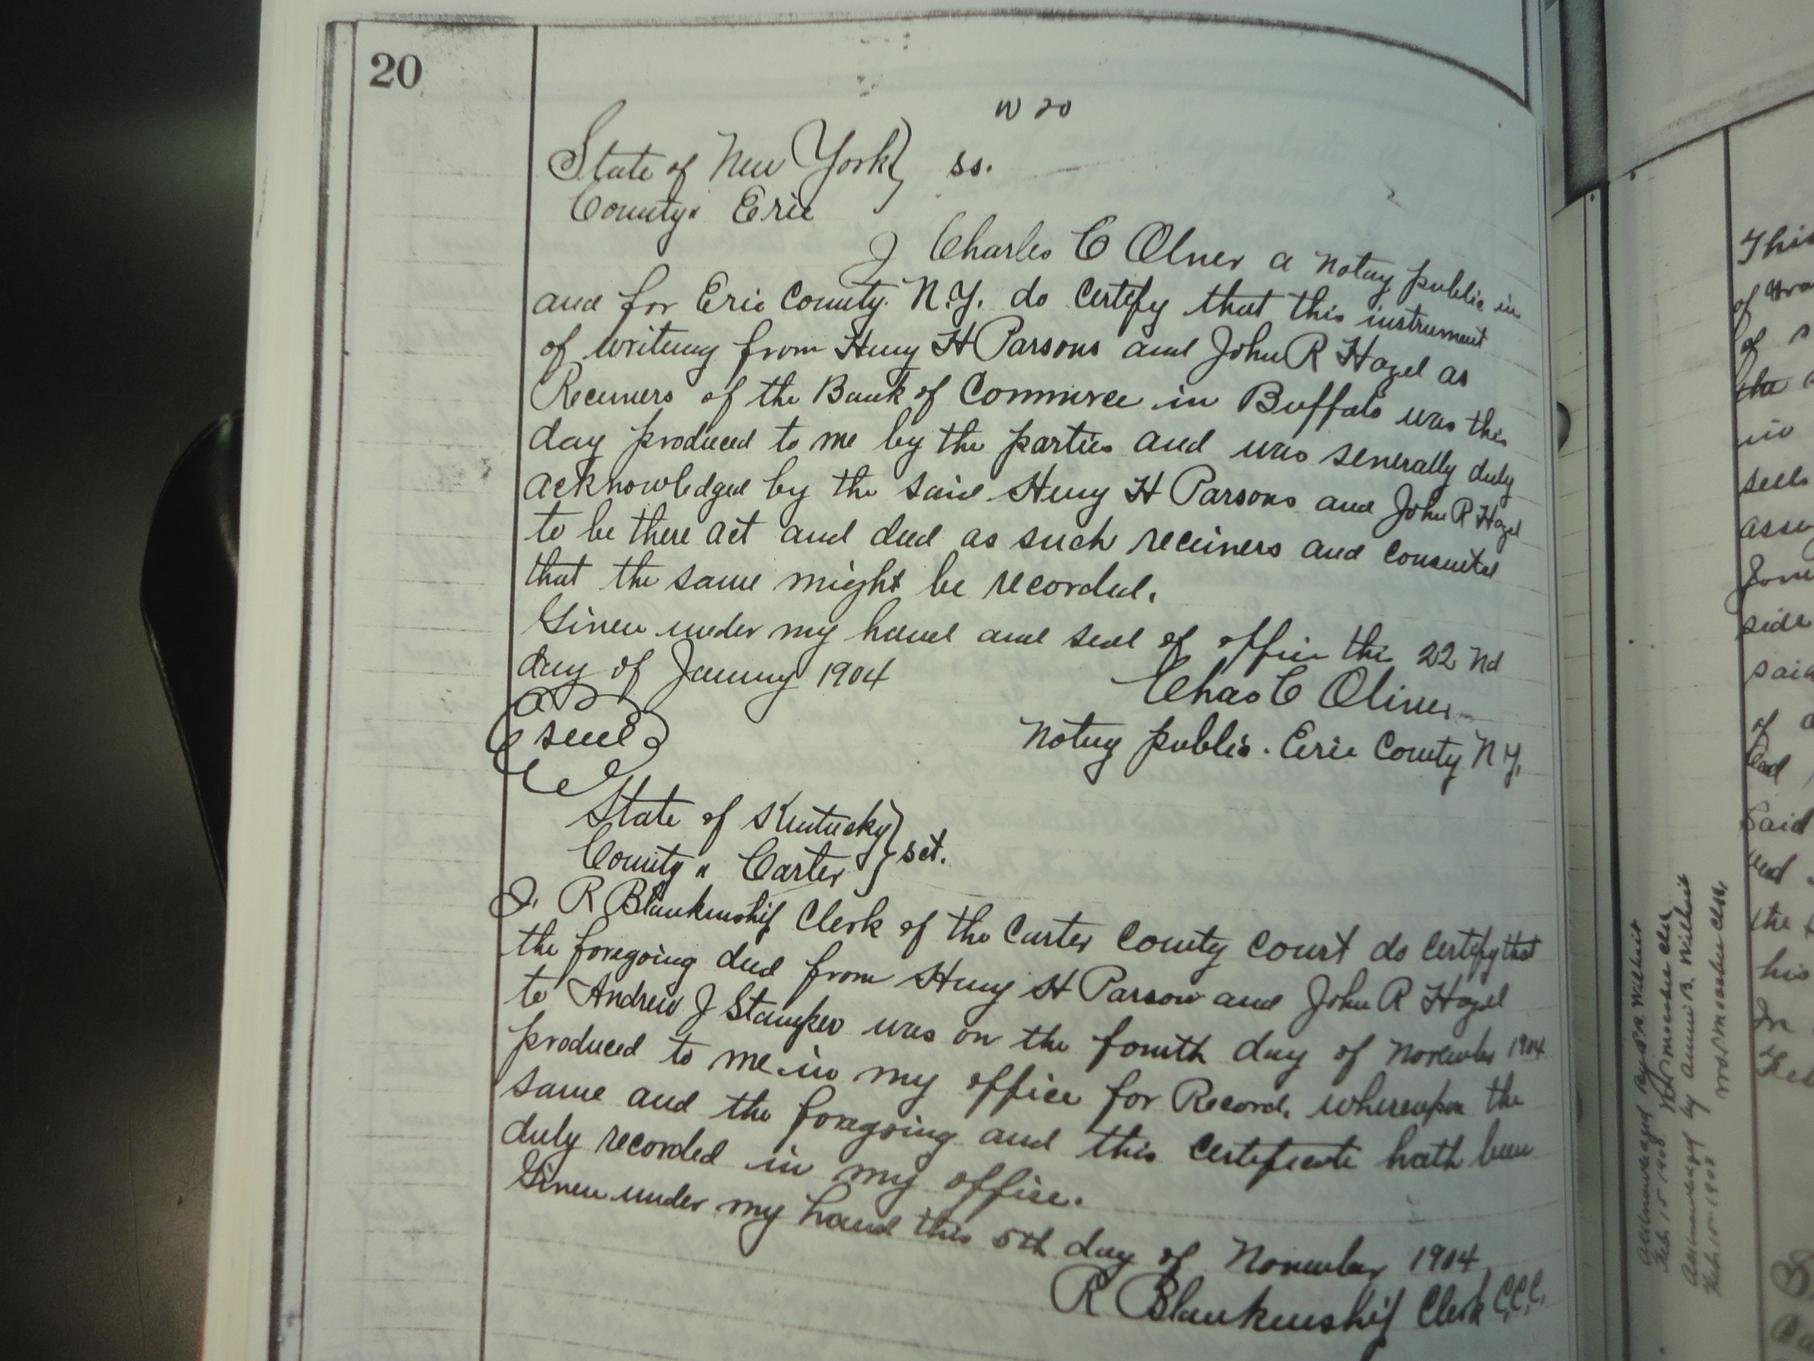 20
W 20
State of New York } ss.
County " Erie
I Charles C Olner a notary public in
and for Erie County. N.Y. do certify that this instrument
of writing from Henry H Parsons and John R Hazel as
Receivers of the Bank of Commerce in Buffalo was this
day produced to me by the parties and was severally duly
acknowledged by the said Henry H Parsons and John R Hazel
to be there act and deed as such receivers and consented
that the same might be recorded.
Given under my hand and seal of office this 22nd
day of January 1904
Chas C Oliver
seal
Notary public. Erie County N.Y.
State of Kentucky } sct.
County " Carter
I. R Blankenship Clerk of the Carter County Court do certify that
the foregoing deed from Henry H Parson and John R Hazel
to Andrew J Stamper was on the fourth day of November 1904
produced to me in my office for Record, whereupon the
same and the foregoing and this certificate hath been
duly recorded in my office.
Given under my hand this 5th day of November 1904
R Blankenship Clerk C.C.C.
This
of
of
the
in
sells
side
said
of
Said
and
the
his
In
Feb 15 1908
by Annie B. Wilhoit
Feb 15-1908